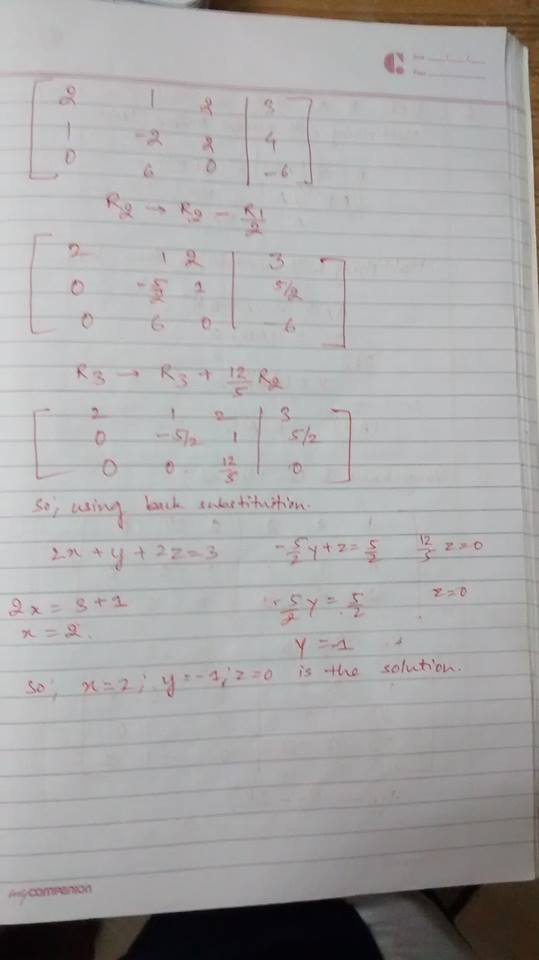 2 1 2 | 3
1 -2 2 | 4
0 6 0 | -6
R2 → R2 - R1/2
2 1 2 | 3
0 -5/2 1 | 5/2
0 6 0 | -6
R3 → R3 + 12/5 R2
2 1 2 | 3
0 -5/2 1 | 5/2
0 0 12/5 | 0
So; using back substituition.
2x+y+2z=3 -5/2y+z=5/2 12/5 z=0
2x = 3+1 -5/2y = 5/2 z=0
x = 2. y = -1
So; x=2; y=-1; z=0 is the solution.
mycompanion